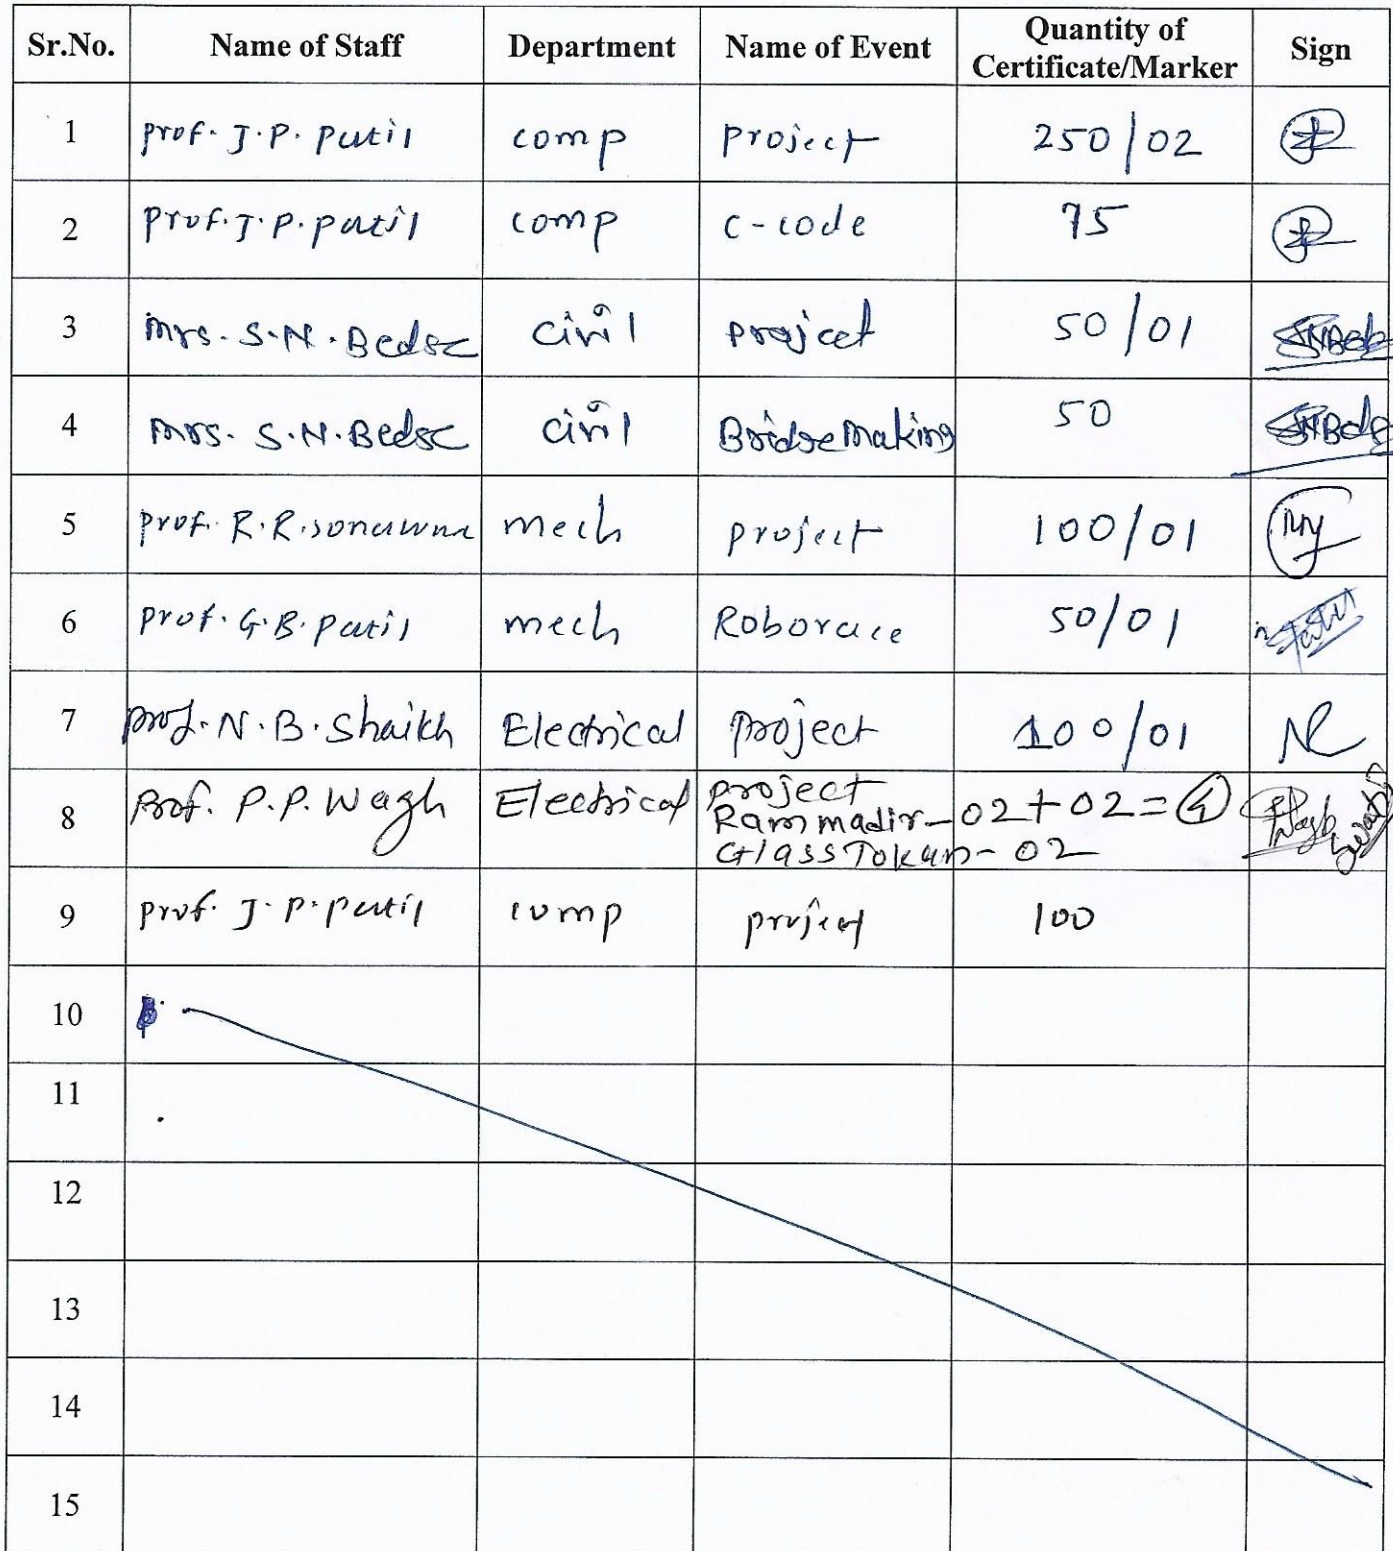 Sr.No. Name of Staff Department Name of Event Quantity of Certificate/Marker Sign
1 prof. J.P. patil comp project 250/02
2 prof. J.P. patil comp c-code 75
3 Mrs. S.N. Bedse civil project 50/01 SNBedse
4 Mrs. S.N. Bedse civil Bridge Making 50 SNBedse
5 prof. R.R. sonawne mech project 100/01
6 prof. G.B. patil mech Roborace 50/01
7 prof. N.B. Shaikh Electrical project 100/01
8 Prof. P.P. Wagh Electrical project
Ram madir- 02+02=4 PWagh
Glass Tokan- 02
9 prof. J.P. patil comp project 100
10
11
12
13
14
15